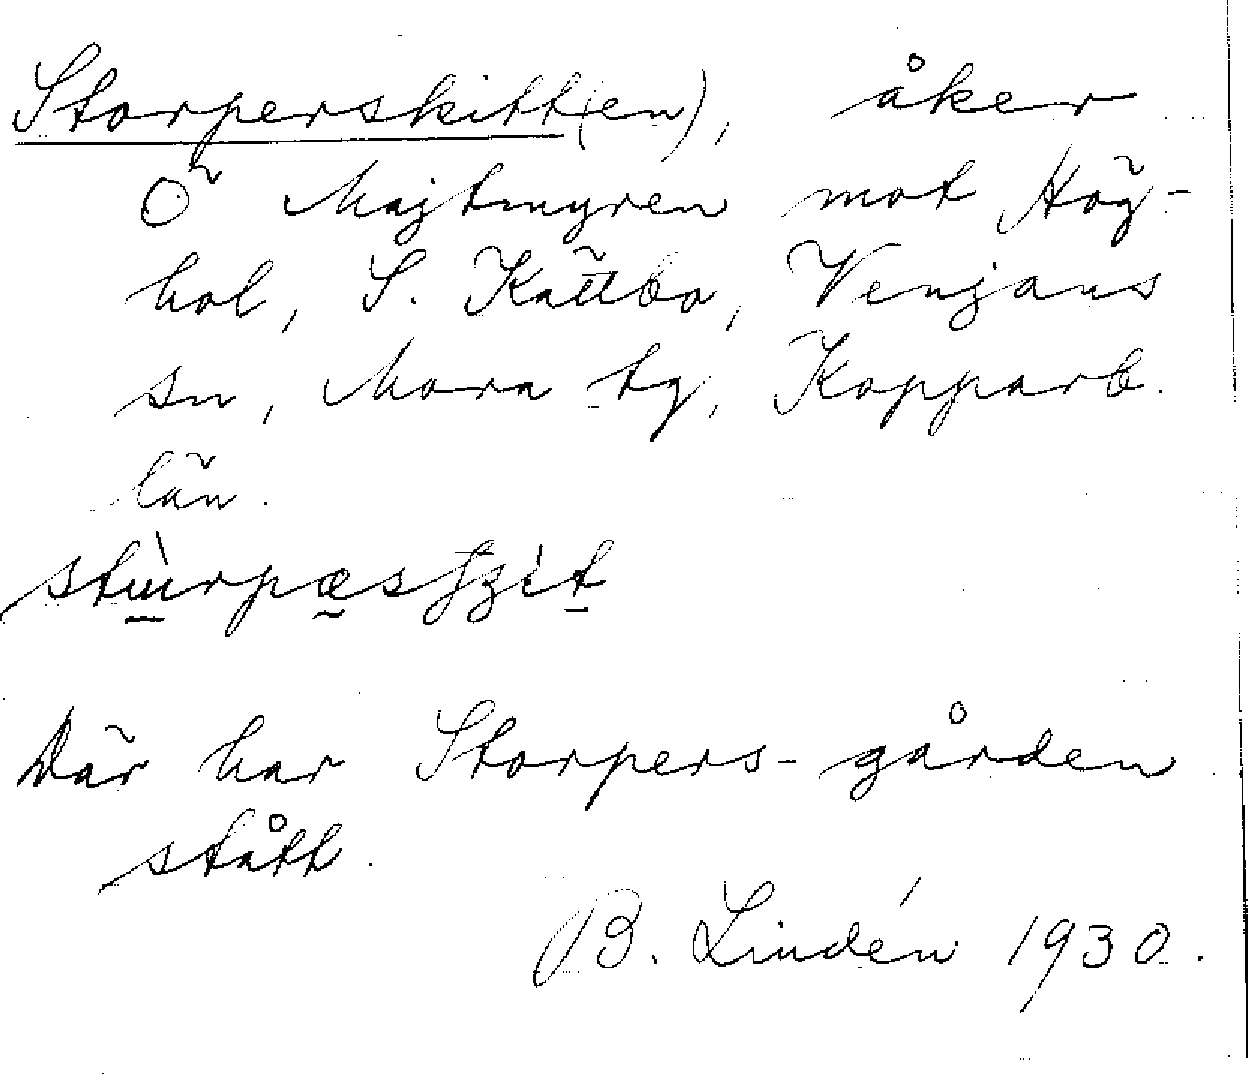 Storperskitt(en), åker
Ö Majtmyren mot Hög-
hol, S. Kättbo, Venjans
sn, Mora tg, Kopparb.
län.
Där har Storpers-gården
stått.
B. Lindén 1930.